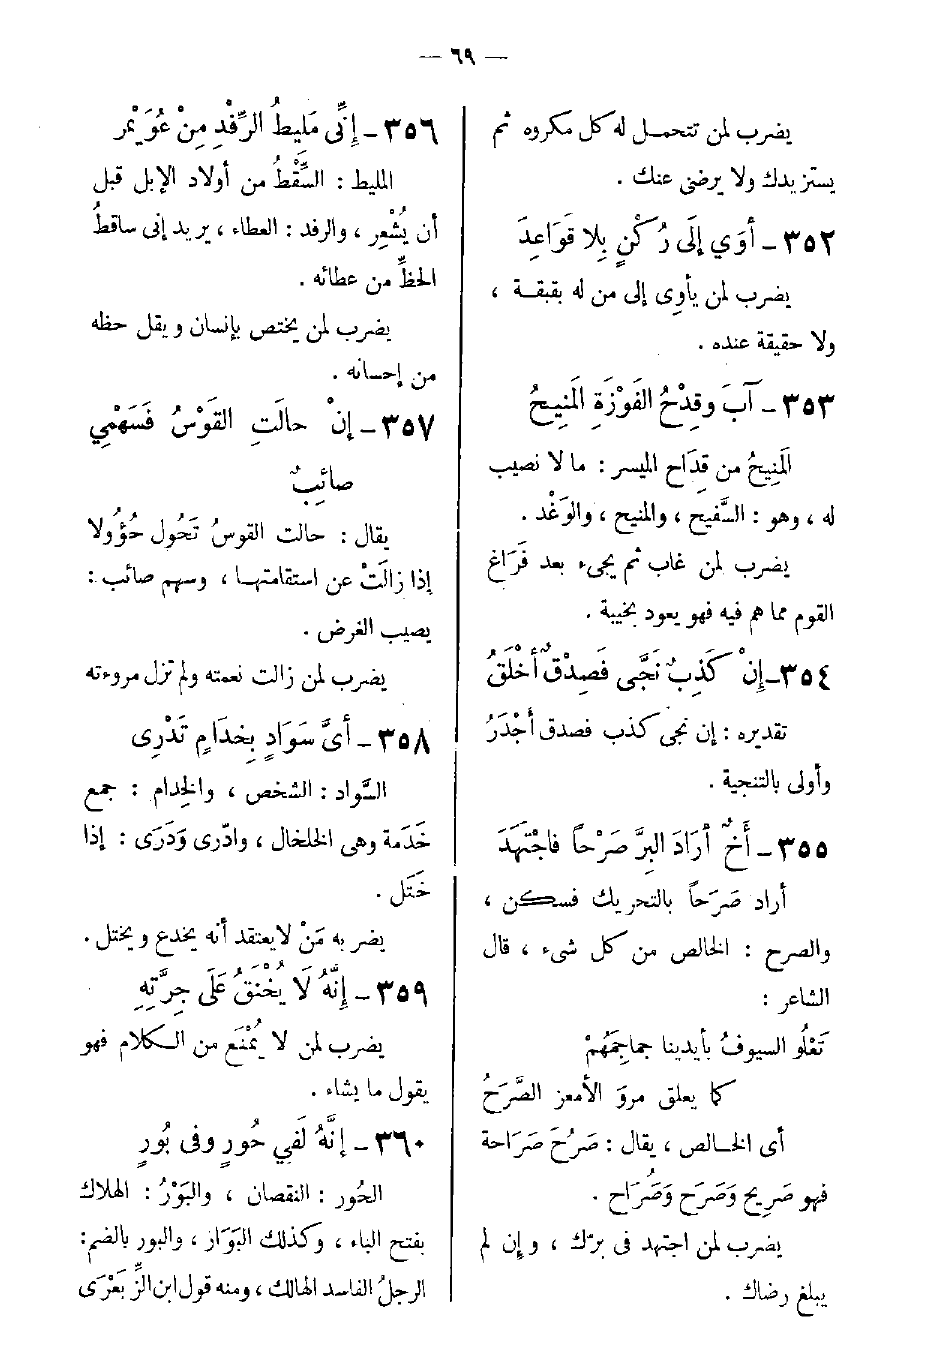 — ٦٩ —
يضرب لمن تتحمل له كل مكروه ثم
يستزيدك ولا يرضى عنك .
٣٥٢ - أَوَي إِلَى رُكْنٍ بِلا قَوَاعِدَ
يضرب لمن يأوِى إلى من له بقبقة ،
ولا حقيقة عنده .
٣٥٣ - آبَ وقِدْحُ الفَوْزَةِ المَنِيحُ
المَنِيحُ من قِدَاح الميسر : ما لا نصيب
له ، وهو : السَّفيح ، والمنيح ، والوَغْد .
يضرب لمن غاب ثم يجىء بعد فَرَاغ
القوم مما هم فيه فهو يعود بخيبة .
٣٥٤ - إِنْ كَذِبٌ نَجَّى فَصِدْقٌ أَخْلَقُ
تقديره : إن نجى كذب فصدق أَجْدَرُ
وأولى بالتنجية .
٣٥٥ - أَخٌ أَرَادَ البِرَّ صَرْحاً فَاجْتَهَدَ
أراد صَرَحاً بالتحريك فسكن ،
والصرح : الخالص من كل شىء ، قال
الشاعر :
تَعْلُو السيوفُ بأيدينا جماجِمَهُمْ
كما يعلق مروَ الأمعز الصَّرَحُ
أى الخالص ، يقال : صَرُحَ صَرَاحة
فهو صَرِيح وَصَرَح وَصُرَاح .
يضرب لمن اجتهد فى برّك ، وإن لم
يبلغ رضاك .
٣٥٦ - إِنِّى مَلِيطُ الرِّفْدِ مِنْ عُوَيْمِرِ
المليط : السِّقْطُ من أولاد الإبل قبل
أن يُشْعِر ، والرفد : العطاء ، يريد إنى ساقطُ
الحظِّ من عطائه .
يضرب لمن يختص بإنسان ويقل حظه
من إحسانه .
٣٥٧ - إِنْ حالَتِ القَوْسُ فَسَهْمِي
صائِبٌ
يقال : حالت القوسُ تَحُول حُؤُولا
إذا زالَتْ عن استقامتها ، وسهم صائب :
يصيب الغرض .
يضرب لمن زالت نعمته ولم تزل مروءته
٣٥٨ - أىَّ سَوَادٍ بِخِدَامٍ تَدْرِى
السَّواد : الشخص ، والخِدام : جمع
خَدَمة وهى الخلخال ، وادّرى وَدَرَى : إذا
خَتَل .
يضر به مَنْ لايعتقد أنه يخدع ويختل .
٣٥٩ - إِنَّهُ لَا يُخْنَقُ عَلَى جِرَّتِهِ
يضرب لمن لا يُمْنَع من الكلام فهو
يقول ما يشاء .
٣٦٠ - إِنَّهُ لَفِي حُورٍ وفى بُورٍ
الحُور : النقصان ، والبَوْرُ : الهلاك
بفتح الباء ، وكذلك البَوَار ، والبور بالضم:
الرجلُ الفاسد الهالك ، ومنه قول ابن الزِّ بَعْرَى